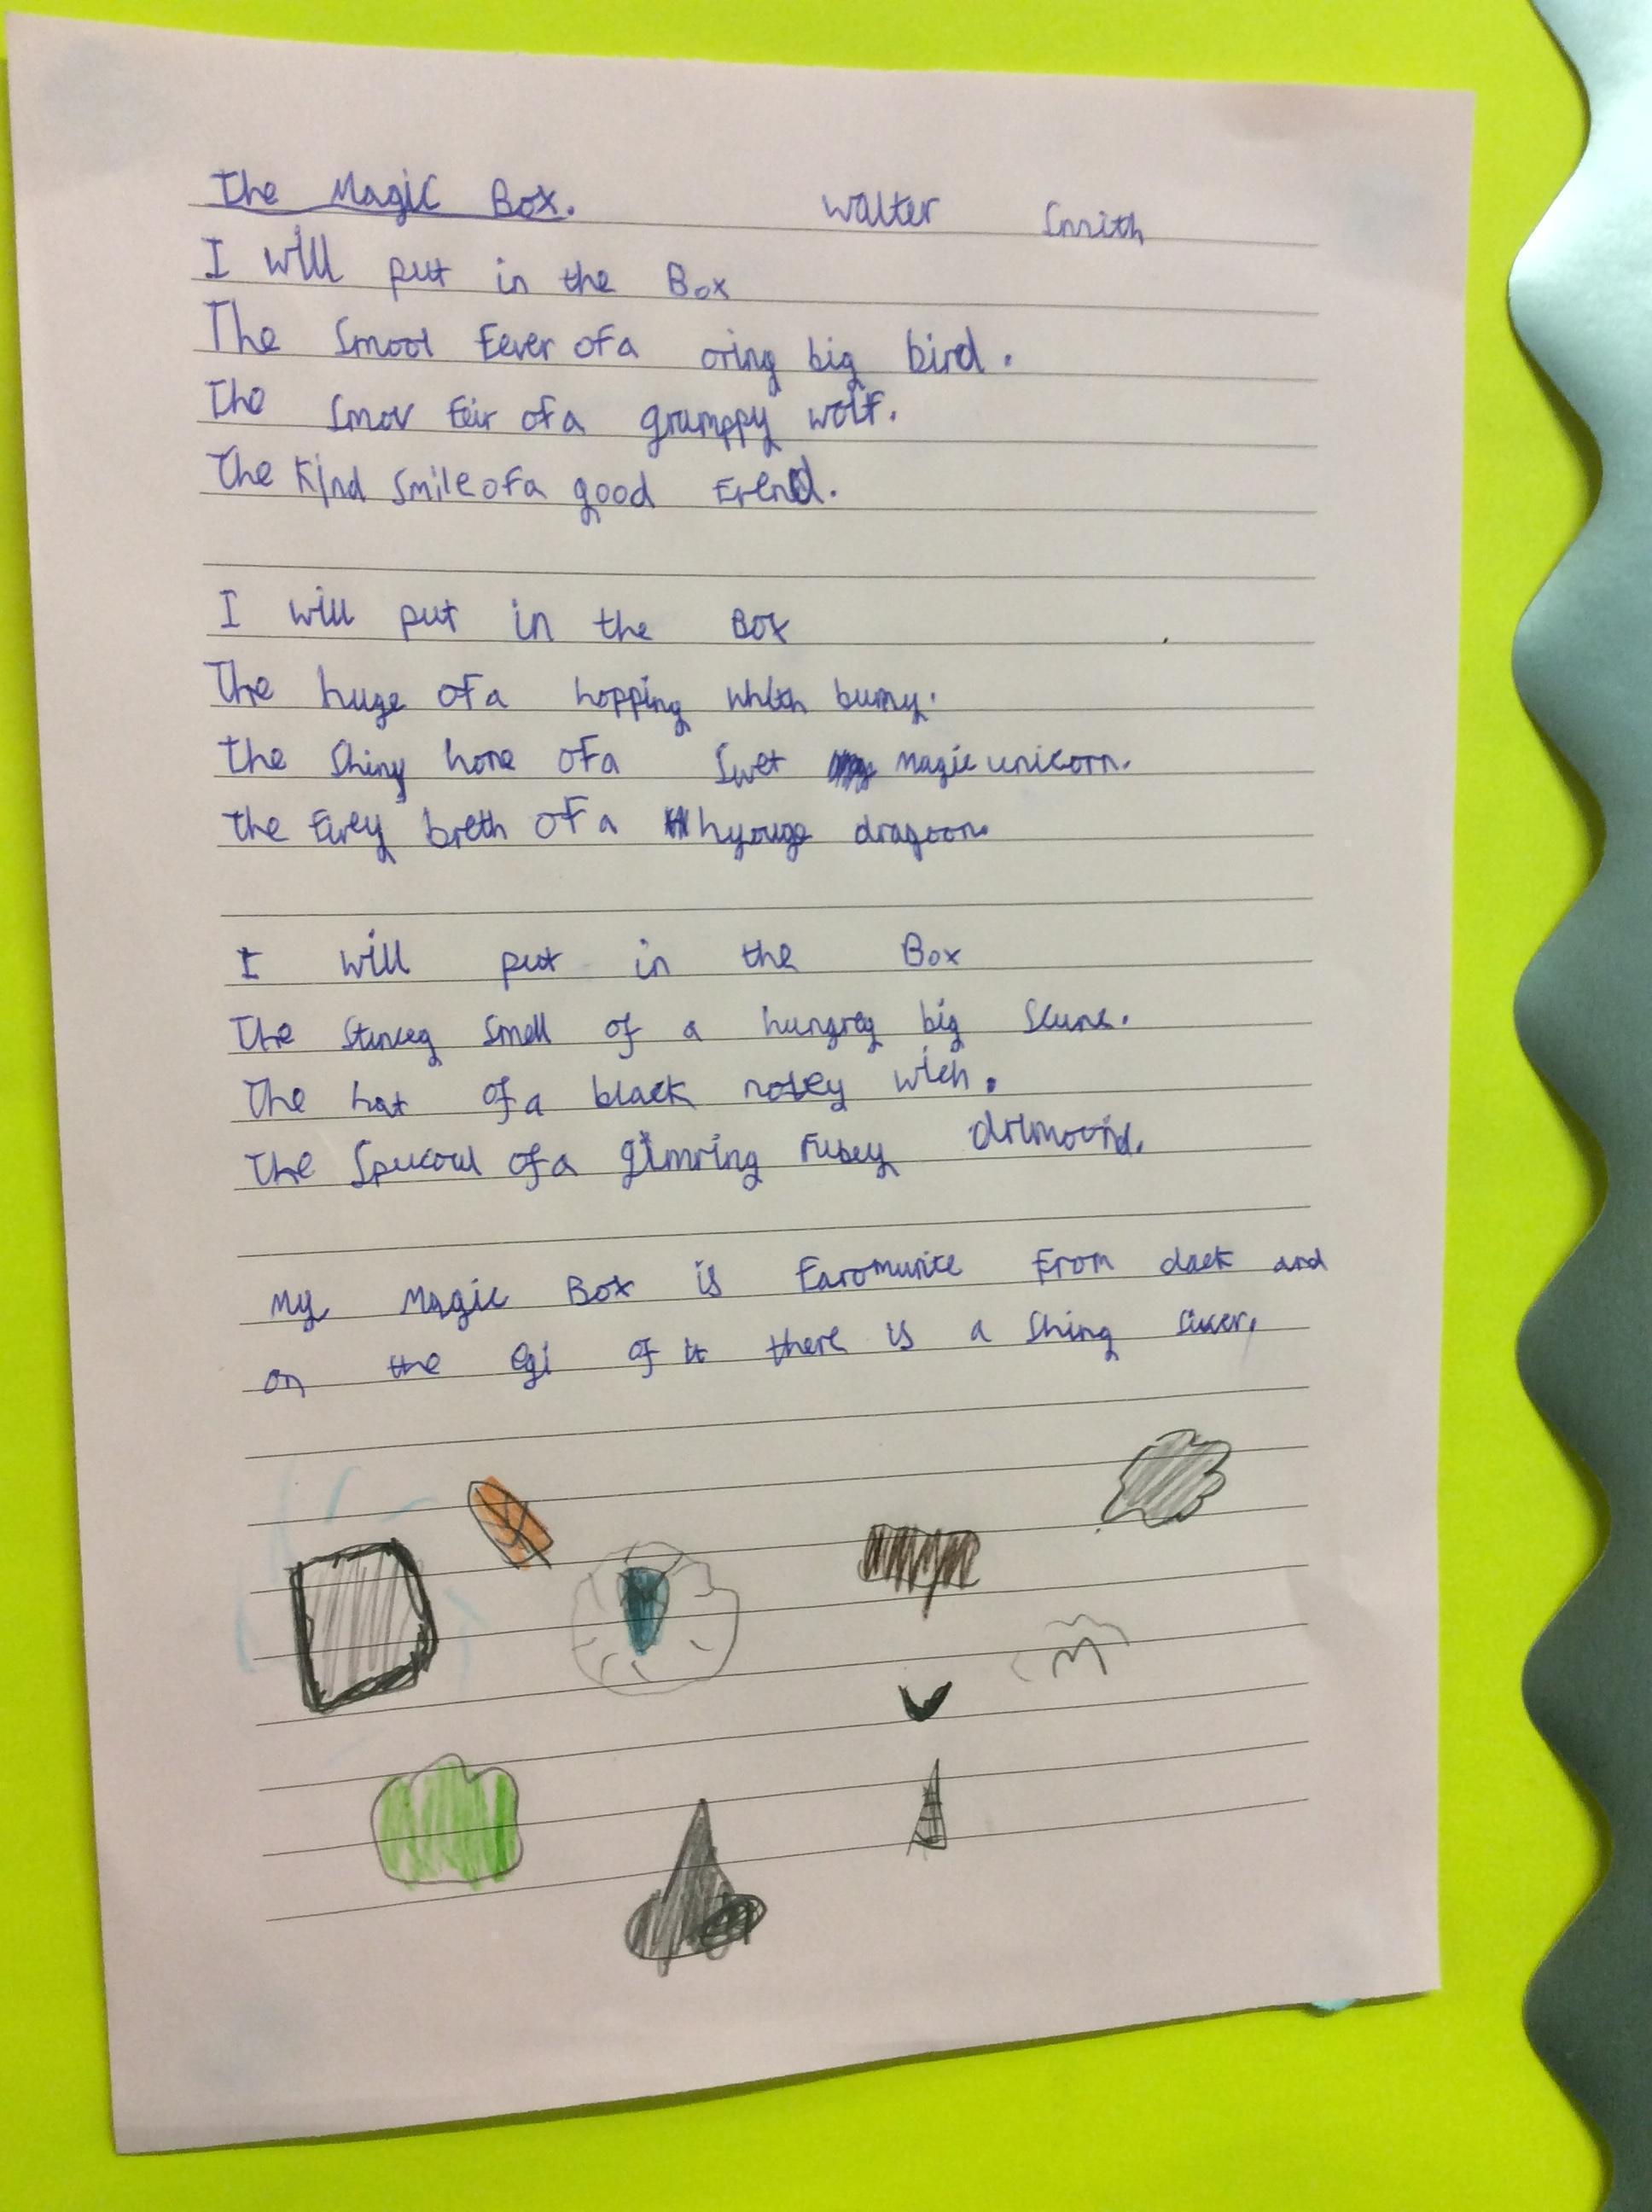 The Magic Box. Walter Smith
I will put in the Box
The Smool Fever of a oring big bird.
The Smov feir of a grumppy wolf.
The Kind Smile of a good Frend.
I will put in the Box
The huge of a hopping bunny.
The Shiny hore of a Swet magic unicorn.
The firey breth of a hyouge dragoon.
I will put in the Box
The Stinceg Smell of a hungrey big Scunc.
The hat of a black nosey wich.
The of a glimring
My Magic Box is From and
on the egi of it there is a Shing